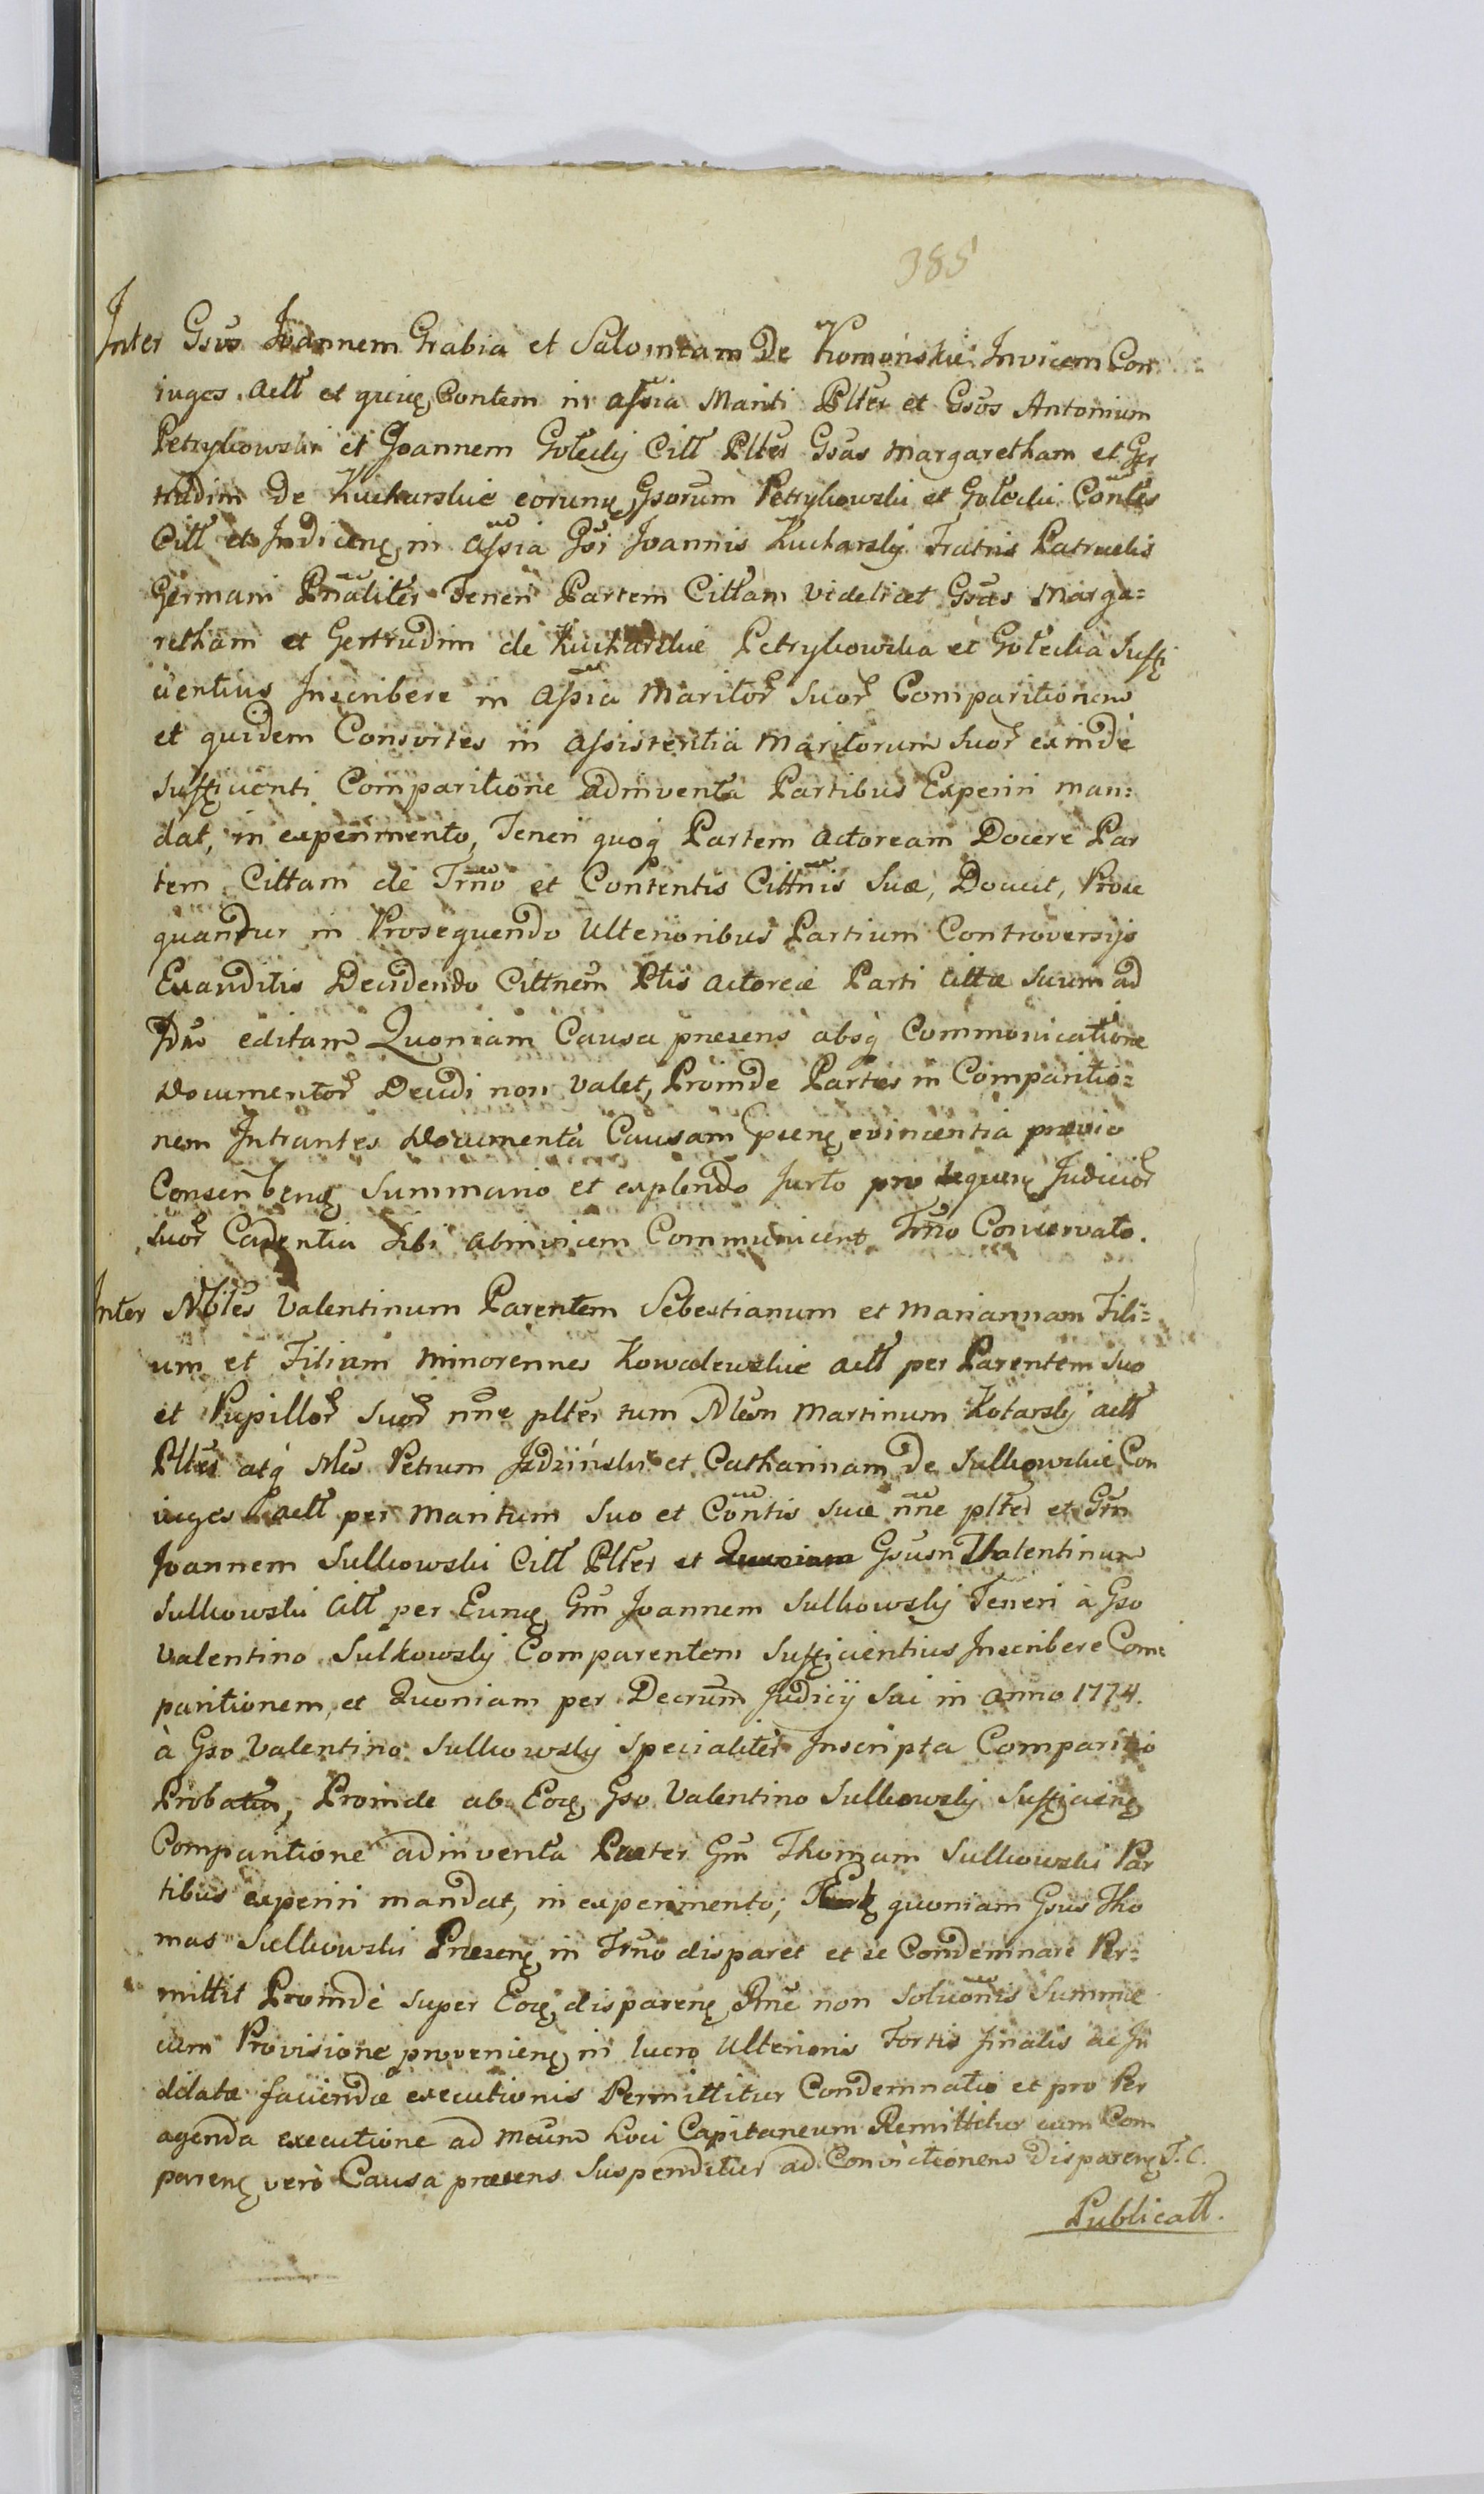 385
Inter Gsos Joannem Grabia et Salomeam De Komońskie Invicem Con
iuges Actt et quidę Contem in Assia Mariti Plter et Gsos Antonium
Petrykowski et Joannem Golecky Citt Pltes Gsas Margaretham et Ger
trudim De Kucharskie eorunę Gsorum Petrykowski et Golecki Contes
Citt et Indicenę in Assia Gsi Joannis Kucharsky Fratris Patruelis
Germani Pnaliter Teneri Partem Cittam videlicet Gsas Marga=
retham et Gertrudim de Kucharskie Petrykowska et Golecka Suffi
cientius Inscribere in Assia Maritor Suor Comparitionem
et quidem Consortes in Assistentia Maritorum Suor exinde
Sufficienti Comparitione adinventa Partibus Experiri man=
dat, in experimento, Teneri quoq Partem Actoream Docere Par
tem Cittam de Trno et Contentis Cittnis Suæ, Docuit, Prose
quantur in Prosequendo Ulterioribus Partium Controversijs
Exauditis Decidendo Cittnem Ptis Actoreæ Parti Cittæ Suum ad
Jdm editam Quoniam Causa præsens absq Commonicatione
Documentor Decidi non valet, Proinde Partes in Comparitio=
nem Intrantes Documenta Causam psenę evincentia prævio
Conscribenę Summario et explendo Jurto pro sequenę Judicior
Suor Cadentia Sibi abinvicem Communicent Trno Conservato.
Inter Nbles Valentinum Parentem Sebestianum et Mariannam Fili=
um et Filiam Minorennes Kowalewskie Actt per Parentem suo
et Pupillor Suor nne plter tum Nlem Martinum Kotarsky actt
Plter atq Nles Petrum Jzdziński et Catharinam De Sulkowskie Con
iuges actt per Maritum Suo et Contis suæ nne plter et Gsm
Joannem Sulkowski Citt Plter et Gsusn Valentinum
Sulkowski Citt per Eunę Gsm Joannem Sulkowsky Teneri à Gso
Valentino Sulkowsky Comparentem Sufficientius Inscribere Com=
paritionem, et Quoniam per Decrum Judicij Sui in Anno 1774.
à Gso Valentino Sulkowsky Specialiter Inscripta Comparitio
Probatur, Proinde ab Eoę Gso Valentino Sulkowsky Sufficienę
Comparitione adinventa Præter Gsm Thomam Sulkowski Par
tibus experiri mandat, in experimento; quoniam Gsus Tho
mas Sulkowski Præsenę in Trno disparet et se Condemnare Per=
mittit Proinde super Eoę disparenę Rne non Solucionis Summæ
cum Provisione provenienę in lucro Ulterioris Fortis finalis ac In
dilatæ faciendæ executionis Permittitur Condemnatio et pro Per
agenda executione ad Meum Loci Capitaneum Remittitur cum Com
parenę verò Causa præsens Suspenditur ad Convictionem Disparenę T. C.
Publicatt.